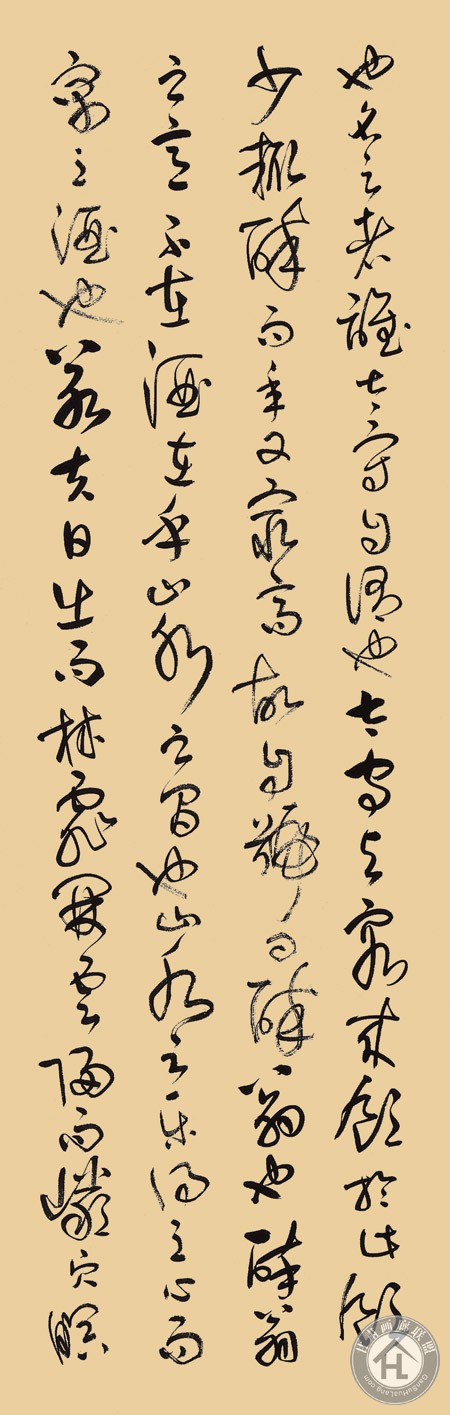 也名之者誰太守自謂也太守與客來飲於此飲
少輒醉而年又最高故自號曰醉翁也醉翁
之意不在酒在乎山水之間也山水之樂得之心而
寓之酒也若夫日出而林霏開雲歸而巖穴暝